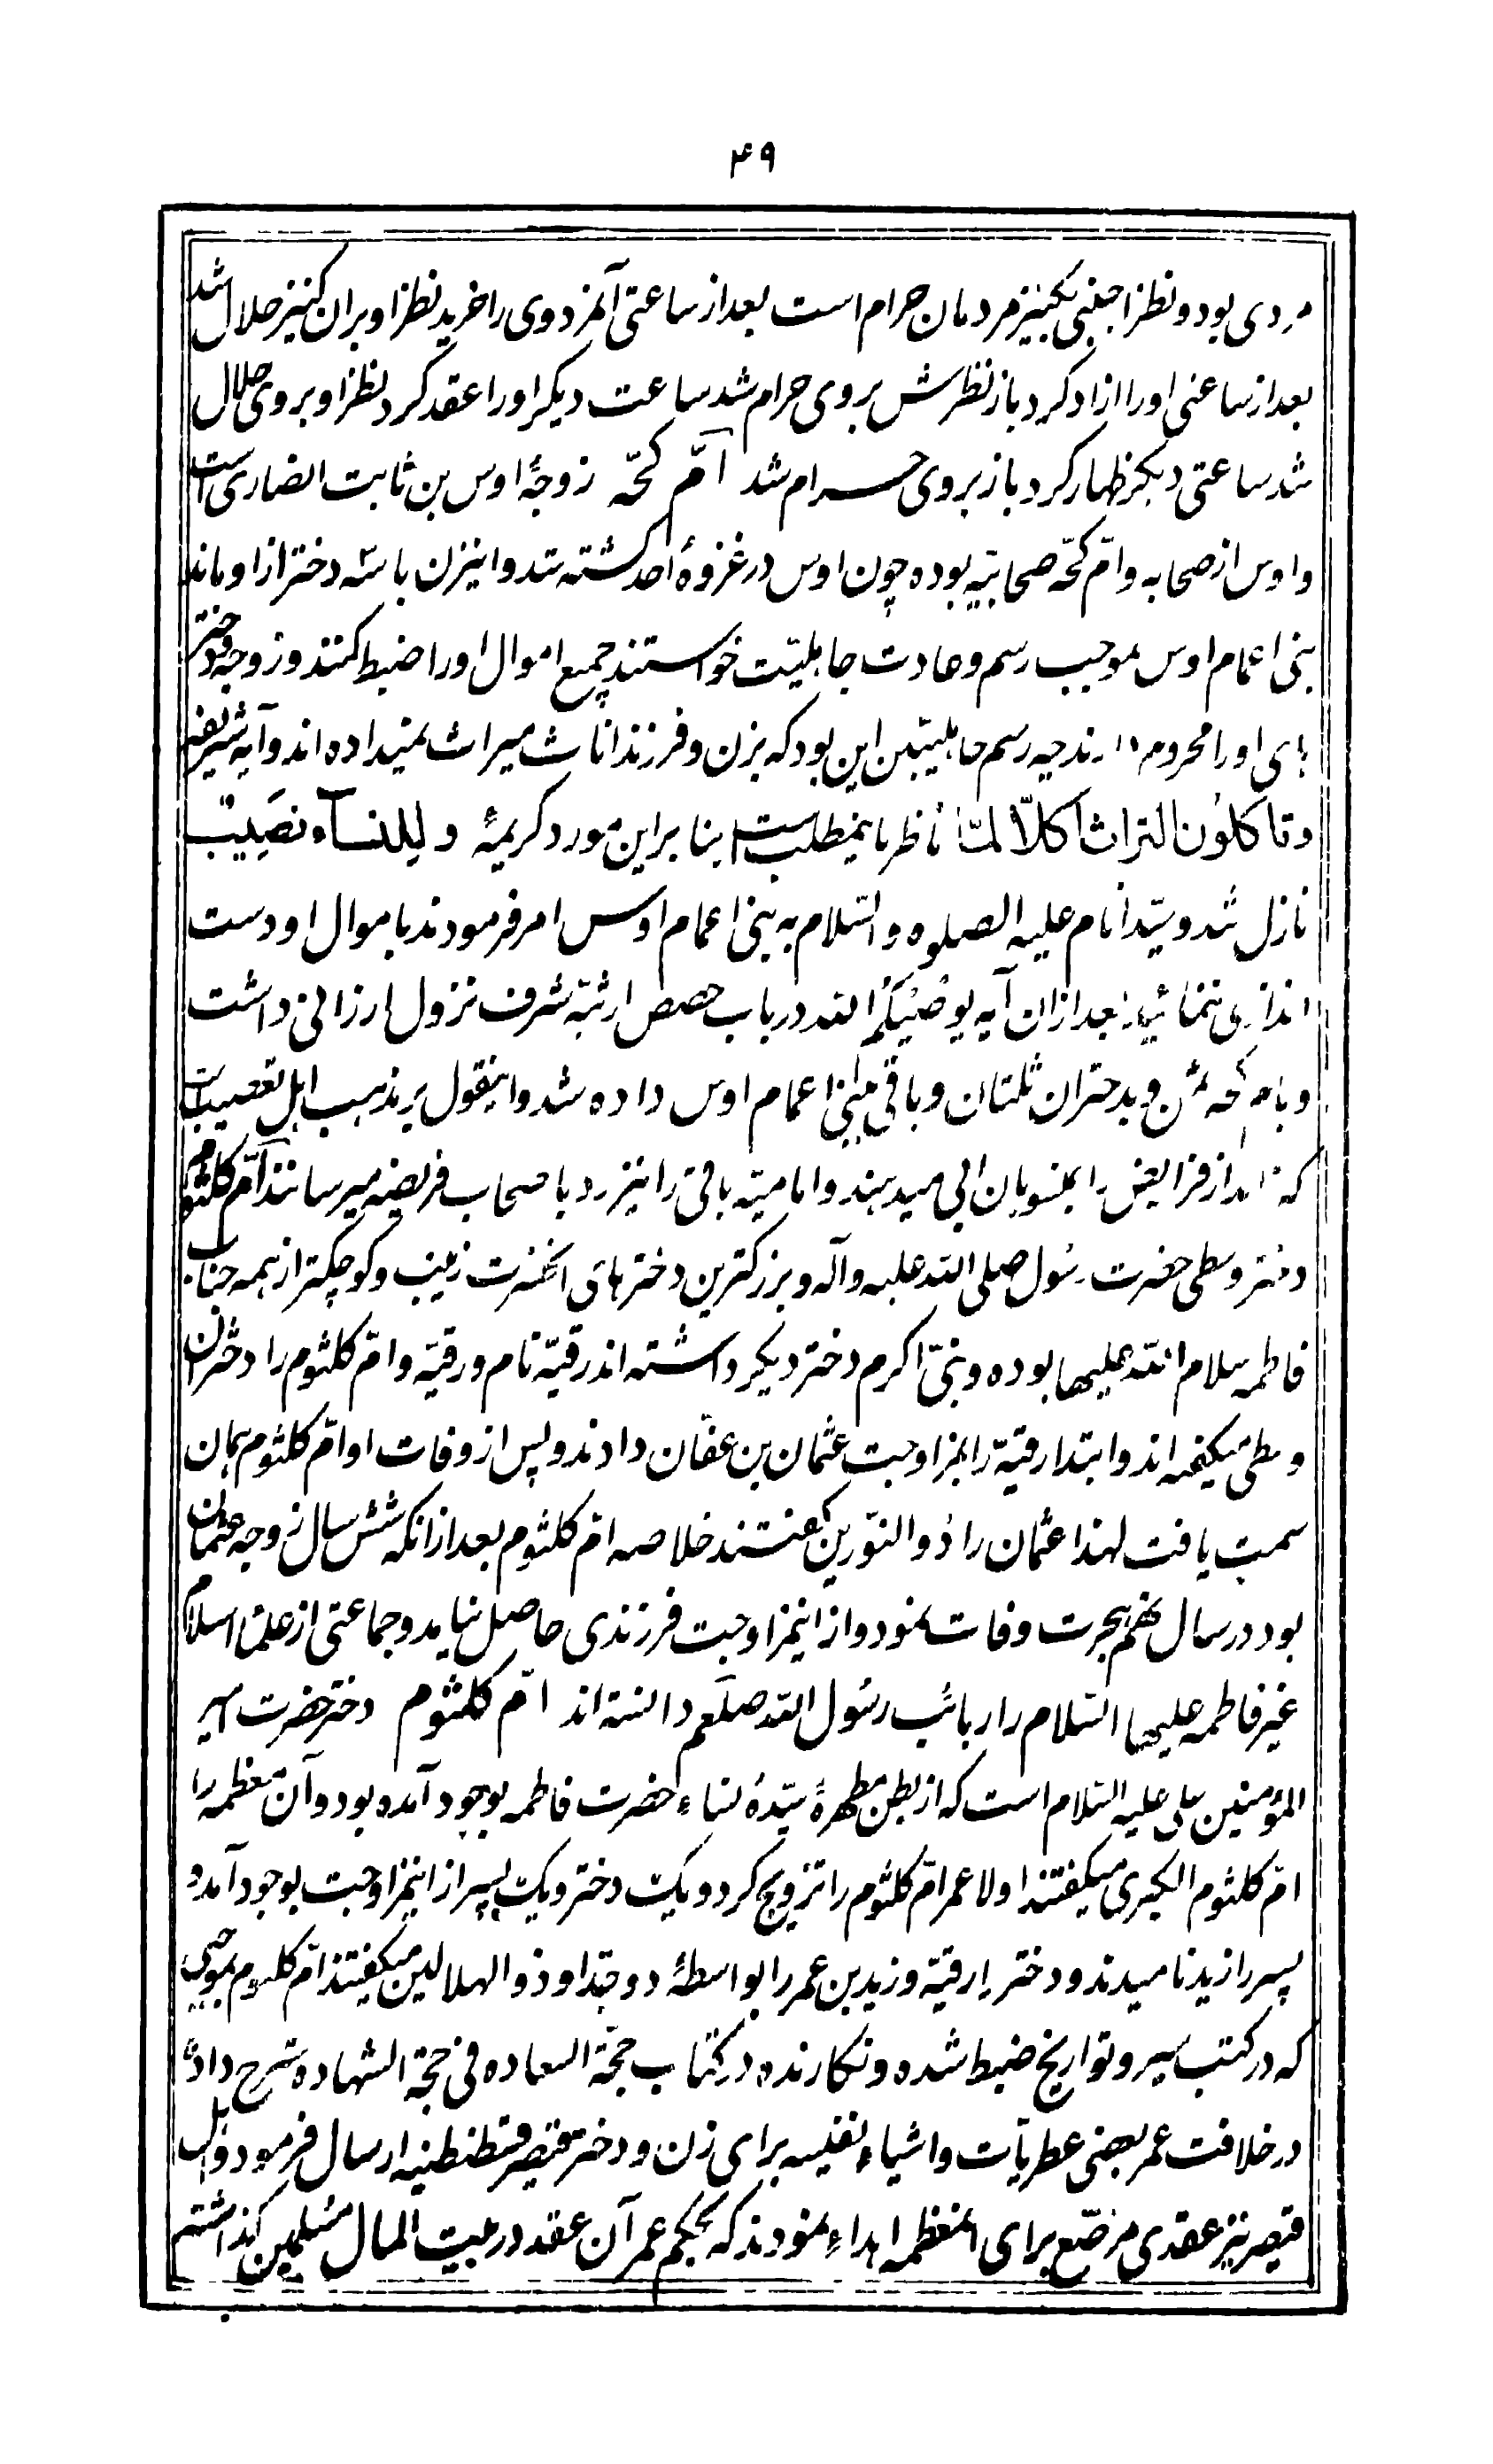 ۴۹
مردی بود و نظر اجنبی بکنیز مردمان حرام است بعد از ساعتی آنمرد وی را خرید نظر او بران کنیز حلال شد
بعد از ساعتی او را ازاد کرد باز نظرش بروی حرام شد ساعت دیکر او را عقد کرد نظر او بروی حلال
شد ساعتی دیکر ظهار کرد باز بروی حرام شد امّ کحّه زوجۀ اوس بن ثابت انصاری است
و اوس از صحابه و امّ کحّه صحابیّه بوده چون اوس در غزوۀ احد کشته شد و اینزن با سه دختر از او ماند
بنی اعمام اوس بموجب رسم و عادت جاهلیّت خواستند جمیع اموال او را ضبط کنند و زوجه و دختر
های او را محروم دارند چه رسم جاهلیّین این بود که بزن و فرزند اناث میراث نمیداده اند و آیه شریفه
وتاکلون التراث اکلّا لمّا ناظر باینمطلب است بنا براین مورد کریمۀ وللنسآء نصیبٌ
نازل شد و سیّد انام علیه الصلوه والسّلام به بنی اعمام اوس امر فرمودند باموال او دست
اندازی ننمائید بعد از ان آیه یوصیکم الله در باب حصص ارثیّه شرف نزول ارزانی داشت
و بام کحه ثمن و بدختران ثلثان و باقی ببنی اعمام اوس داده شد و اینقول بر مذهب اهل تعصیب است
که زاید از فرایض را بمنسوبان ابی میدهند و امامیّه باقی را نیز رد باصحاب فریضه میرسانند امّ کلثوم
دختر وسطی حضرت رسول صلی الله علیه وآله و بزرکترین دخترهای آنحضرت زینب و کوچکتر از همه جناب
فاطمه سلام الله علیها بوده و نبیّ اکرم دختر دیکر داشته اند رقیّه نام و رقیّه و امّ کلثوم را دختران
وسطی میکفته اند و ابتدا رقیّه را بمزاوجت عثمان بن عفّان دادند و پس از وفات او امّ کلثوم همان
سمت یافت لهذا عثمان را ذو النّورین کفتند خلاصه امّ کلثوم بعد از انکه شش سال زوجه عثمان
بود در سال نهم هجرت وفات نمود و از اینمزاوجت فرزندی حاصل نیامد و جماعتی از علماء اسلام
غیر فاطمه علیها السّلام را ربائب رسول الله صلعم دانسته اند امّ کلثوم دختر حضرت امیر
المؤمنین علی علیه السّلام است که از بطن مطهرۀ سیّدۀ نساء حضرت فاطمه بوجود آمده بود و آن معظمه را
امّ کلثوم الکبری میکفتند اولا عمر امّ کلثوم را تزویج کرد و یک دختر و یک پسر از اینمزاوجت بوجود آمد و
پسر را زید نامیدند و دختر را رقیّه و زید بن عمر را بواسطۀ دو جدّ او ذو الهلالین میکفتند امّ کلثوم بموجبی
که در کتب سیر و تواریخ ضبط شده و نکارنده در کتاب حجّة السعاده فی حجّة الشهاده شرح داده
در خلافت عمر بعضی عطریّات و اشیاء نفیسه برای زن و دختر قیصر قسطنطنیه ارسال فرمود و اهل
قیصر نیز عقدی مرصّع برای انمعظمه اهداء نمودند که بحکم عمر آن عقد در بیت المال مسلمین کذاشته